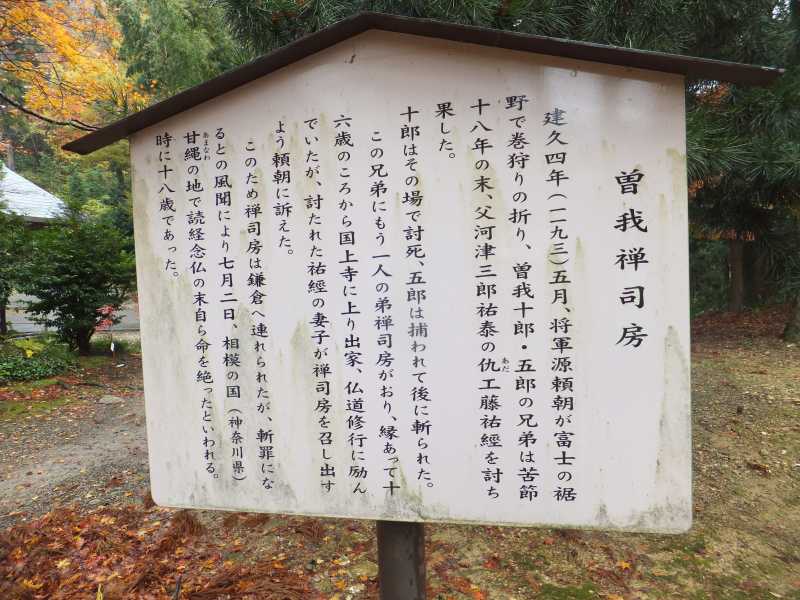 曽我禅司房
建久四年（一一九三）五月、将軍源頼朝が富士の裾
野で巻狩りの折り、曽我十郎・五郎の兄弟は苦節
十八年の末、父河津三郎祐泰の仇工藤祐經を討ち
あだ
果した。
十郎はその場で討死、五郎は捕われて後に斬られた。
この兄弟にもう一人の弟禅司房がおり、縁あって十
六歳のころから国上寺に上り出家、仏道修行に励ん
でいたが、討たれた祐經の妻子が禅司房を召し出す
よう頼朝に訴えた。
このため禅司房は鎌倉へ連れられたが、斬罪にな
るとの風聞により七月二日、相模の国（神奈川県）
甘縄の地で読経念仏の末自ら命を絶ったといわれる。
あまなわ
時に十八歳であった。